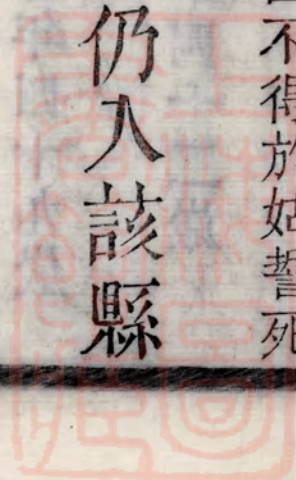 不得於姑誓死
仍入該縣